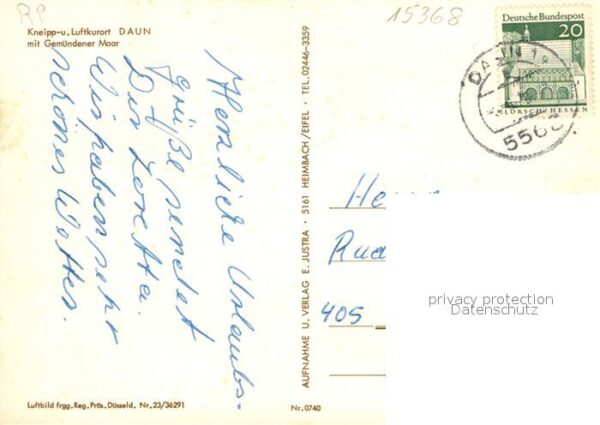 RP
15368
Kneipp-u. Luftkurort DAUN
mit Gemündener Maar
Herzliche Urlaubs-
grüße sendet
Dir Loretta.
Wir haben sehr
schönes Wetter.
AUFNAHME U. VERLAG E. JUSTRA · 5161 HEIMBACH/EIFEL · TEL. 02446-3359
Deutsche Bundespost
20
LORSCH/HESSEN
DAUN 1
He
Rud
405
privacy protection
Datenschutz
Luftbild frgg. Reg. Präs. Düsseld. Nr. 23/36291
Nr. 0740